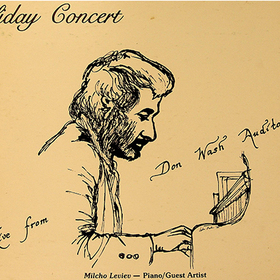 iday Concert
Don Wash Audito
ive from
Milcho Leviev — Piano/Guest Artist